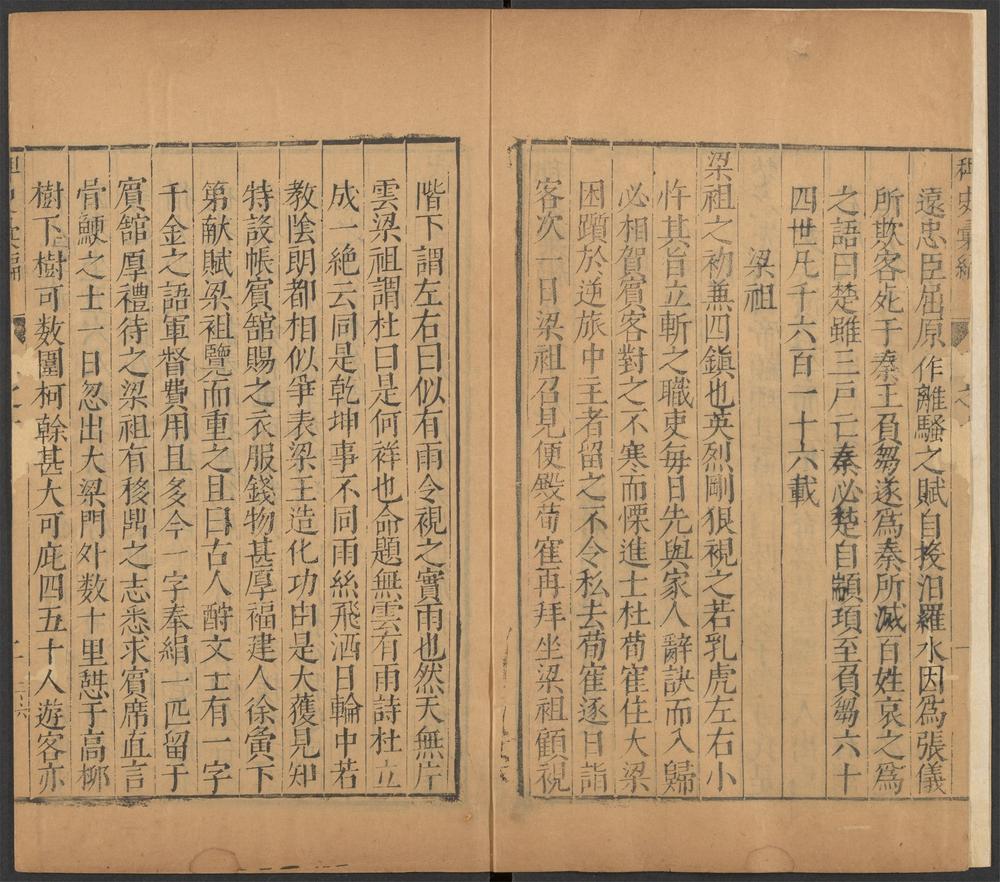 稗史彙編
遠忠臣屈原作離騷之賦自投汨羅水因為張儀
所欺客死于秦王負芻遂為秦所滅百姓哀之為
之語曰楚雖三戸亡秦必楚自顓頊至負芻六十
四世凡千六百一十六載
梁祖
梁祖之初兼四鎮也英烈剛狠視之若乳虎左右小
忤其旨立斬之職吏毎日先與家人辭訣而入歸
必相賀賓客對之不寒而慄進士杜荀寉住大梁
困躓於逆旅中主者留之不令私去荀寉逐日詣
客次一日梁祖召見便殿荀寉再拜坐梁祖顧視
階下謂左右曰似有雨令視之實雨也然天無片
雲梁祖謂杜曰是何祥也命題無雲有雨詩杜立
成一絶云同是乾坤事不同雨絲飛洒日輪中若
教陰朗都相似爭表梁王造化功由是大獲見知
特設帳賓舘賜之衣服錢物甚厚福建人徐夤下
第献賦梁祖覽而重之且曰古人酧文士有一字
千金之語軍督費用且多今一字奉絹一匹留于
賓舘厚禮待之梁祖有移鼎之志悉求賓席直言
骨鯁之士一日忽出大梁門外数十里憇于高栁
樹下樹可数圍柯榦甚大可庇四五十人遊客亦